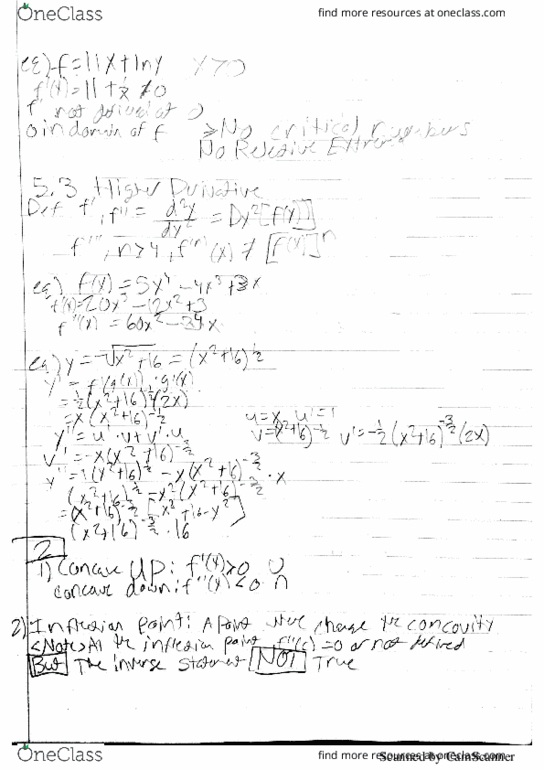 OneClass find more resources at oneclass.com
eg) f = 11x + lny x>0
f'(x) = 11 + 1/x ≠ 0
f' not defined at 0
0 in domain of f => No critical numbers
No Relative Extrema
5.3 Higher Derivative
Def f', f'' = d²y/dy² = Dy²[f(x)]
f''', n>4, f⁽ⁿ⁾(x) ≠ [f(x)]ⁿ
eg) f(x) = 5x⁴ - 4x³ + 3x
f'(x) = 20x³ - 12x² + 3
f''(x) = 60x² - 24x
eg) y = √x² + 16 = (x² + 16)^½
y' = f'(g(x)) · g'(x)
= ½(x² + 16)^-½(2x)
= x(x² + 16)^-½
u = x, u' = 1
y'' = u'·v + v'·u
v = (x² + 16)^-½ v' = -½(x² + 16)^-3/2 (2x)
v' = -x(x² + 16)^-3/2
y'' = 1(x² + 16)^-½ - x(x² + 16)^-3/2 · x
(x² + 16)^-½ - x²(x² + 16)^-3/2
= (x² + 16)^-3/2 [x² + 16 - x²]
(x² + 16)^-3/2 · 16
2
1) Concave UP: f''(x) > 0 ∪
concave down: f''(x) < 0 ∩
2) Inflection point: A point where change the concavity
<Note> At the inflection point f''(c) = 0 or not defined
But The inverse statement NOT True
OneClass find more resources at oneclass.com
Scanned by CamScanner